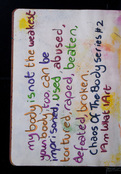 my body is not the weakest
your body, too, can be
imprisoned, used, abused,
tortured, raped, beaten,
defeated, broken.
Chaos Of The Body Series #2
I Am What I Art